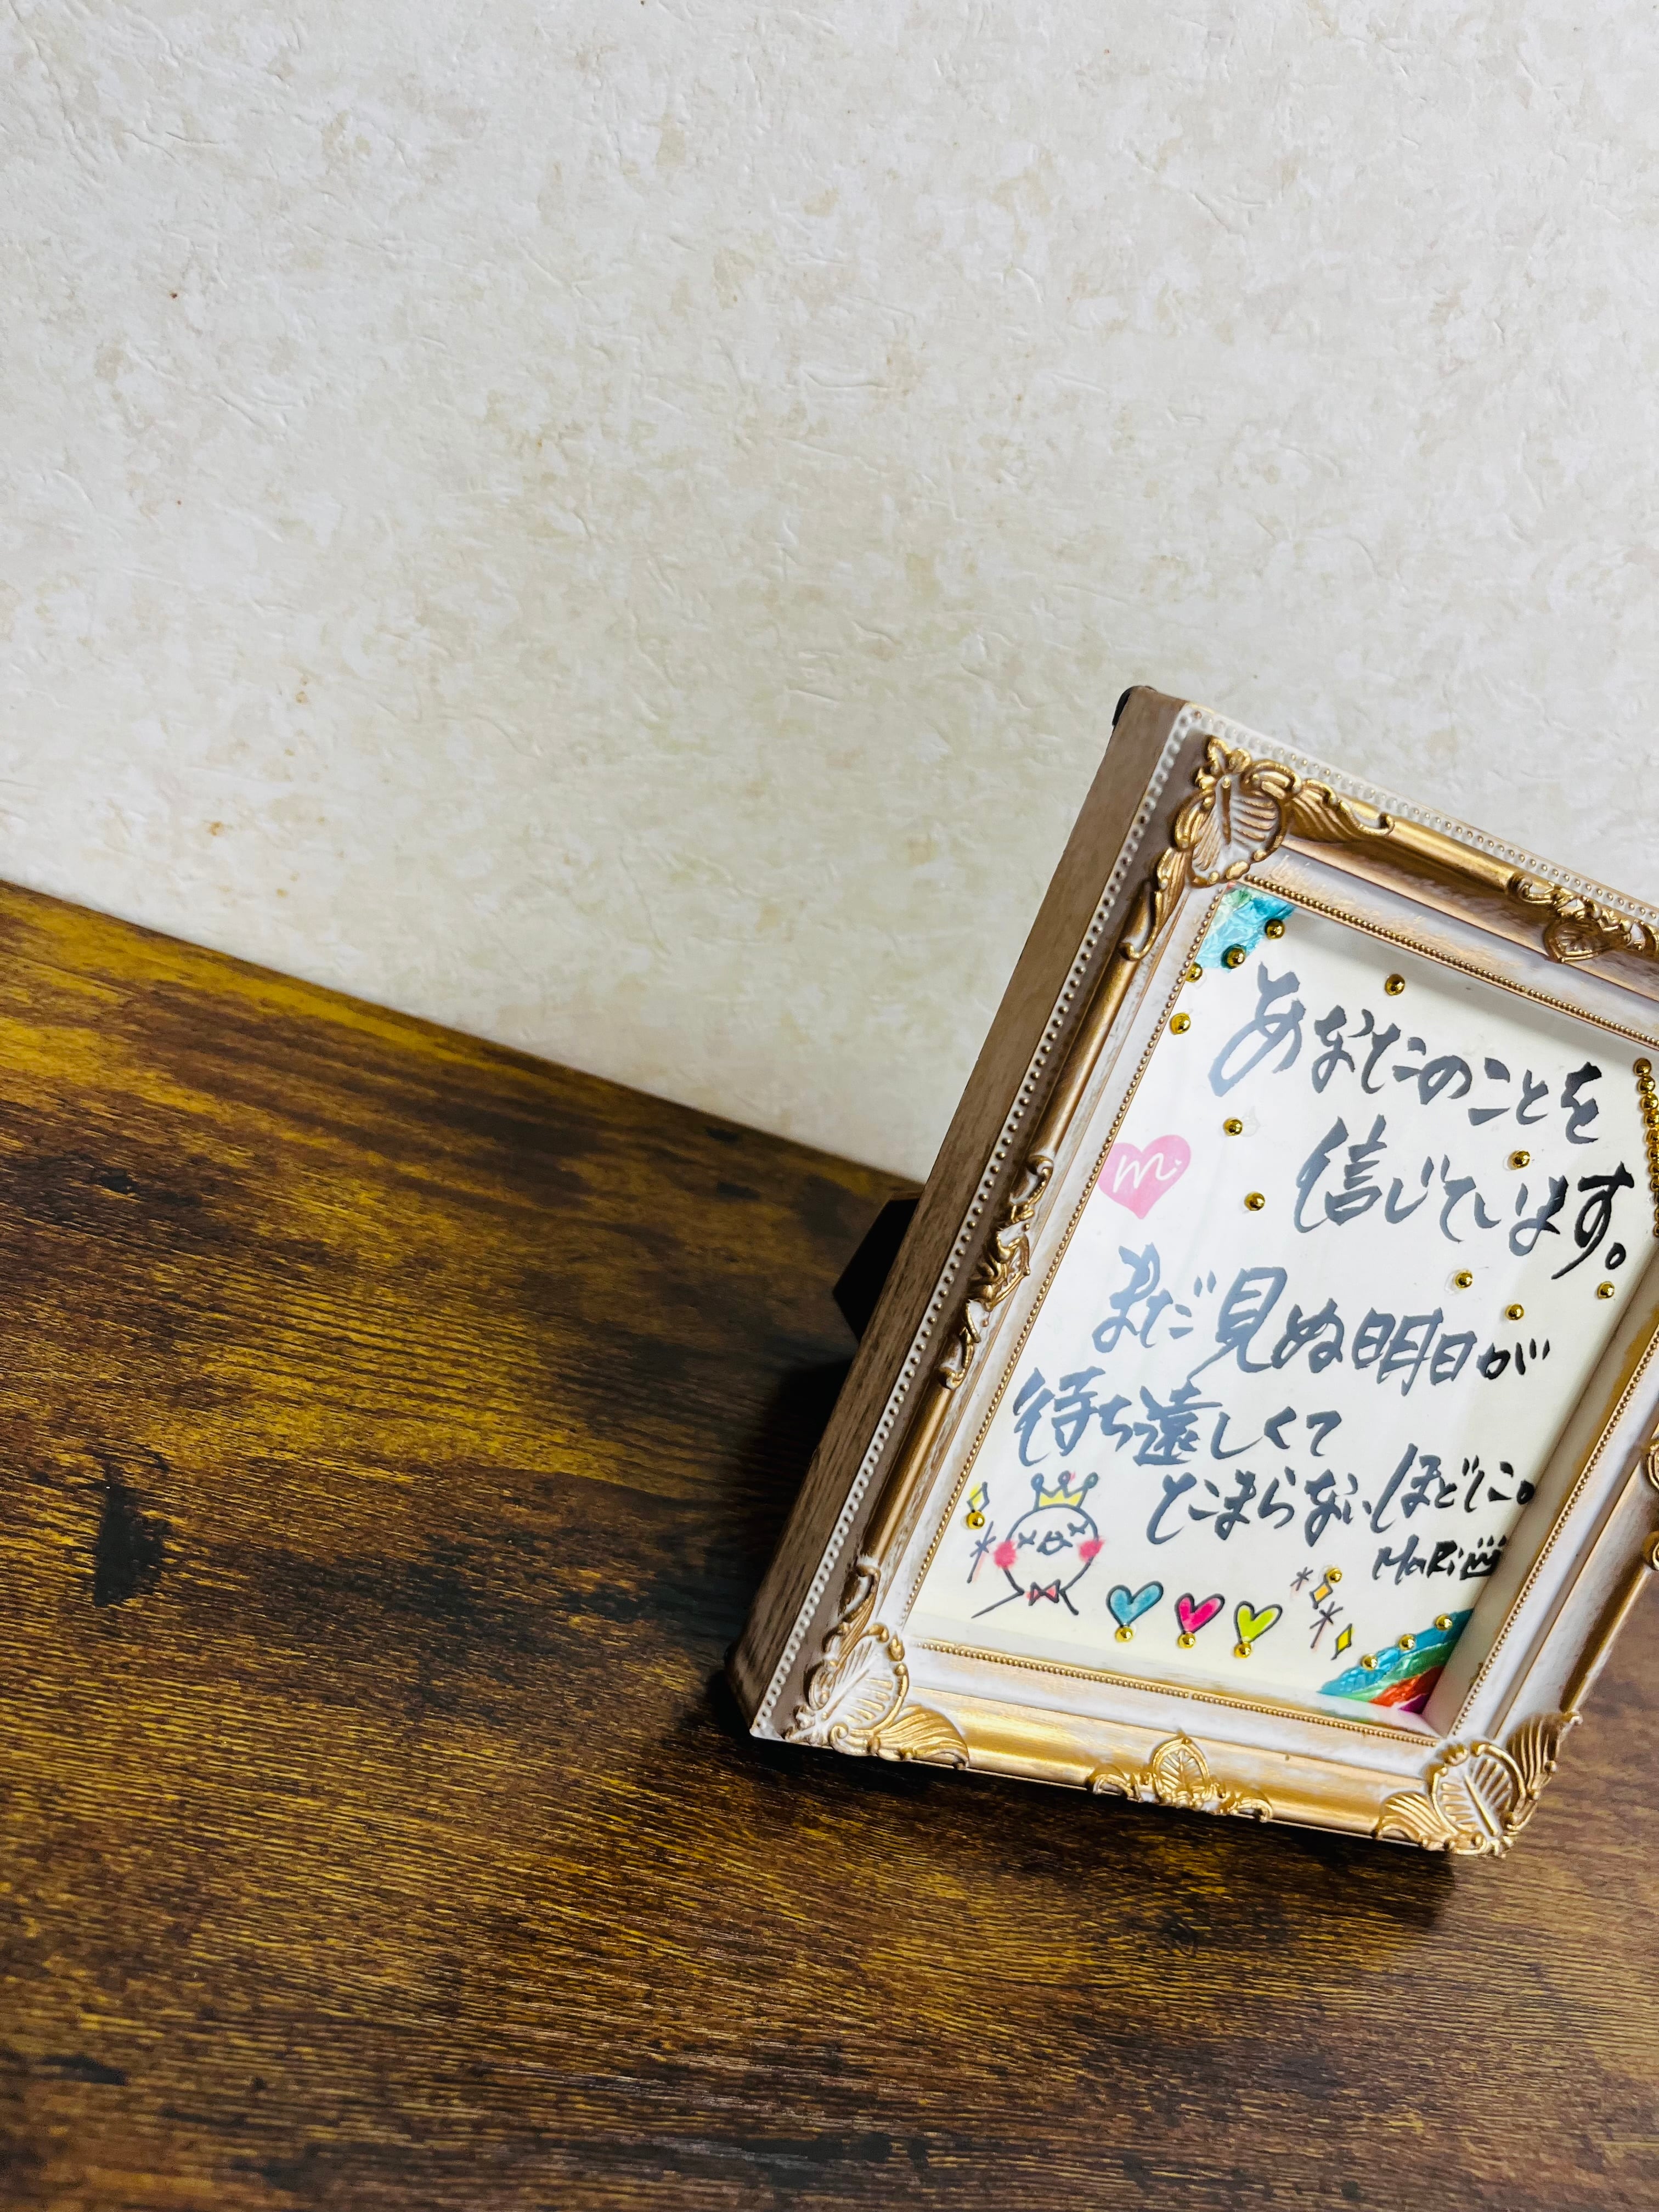 あなたのことを
信じています。
m.
まだ見ぬ明日が
待ち遠しくて
とまらないほどに。
MaRi